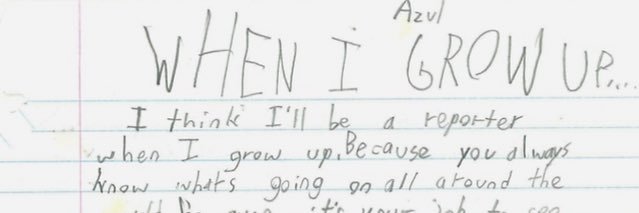 Azul
WHEN I GROW UP...
I think I'll be a reporter
when I grow up. Because you always
know whats going on all around the
it's your job to